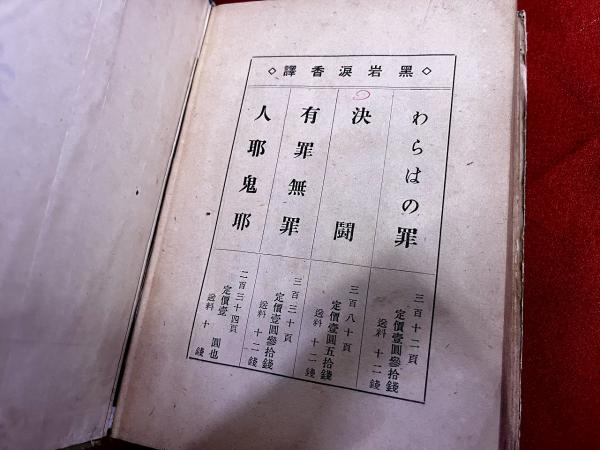 ◇黑岩淚香譯◇
わらはの罪
三百十二頁
定價壹圓參拾錢
送料十二錢
決鬪
三百八十頁
定價壹圓五拾錢
送料十二錢
有罪無罪
三百三十頁
定價壹圓參拾錢
送料十二錢
人耶鬼耶
二百三十四頁
定價壹圓也
送料十錢